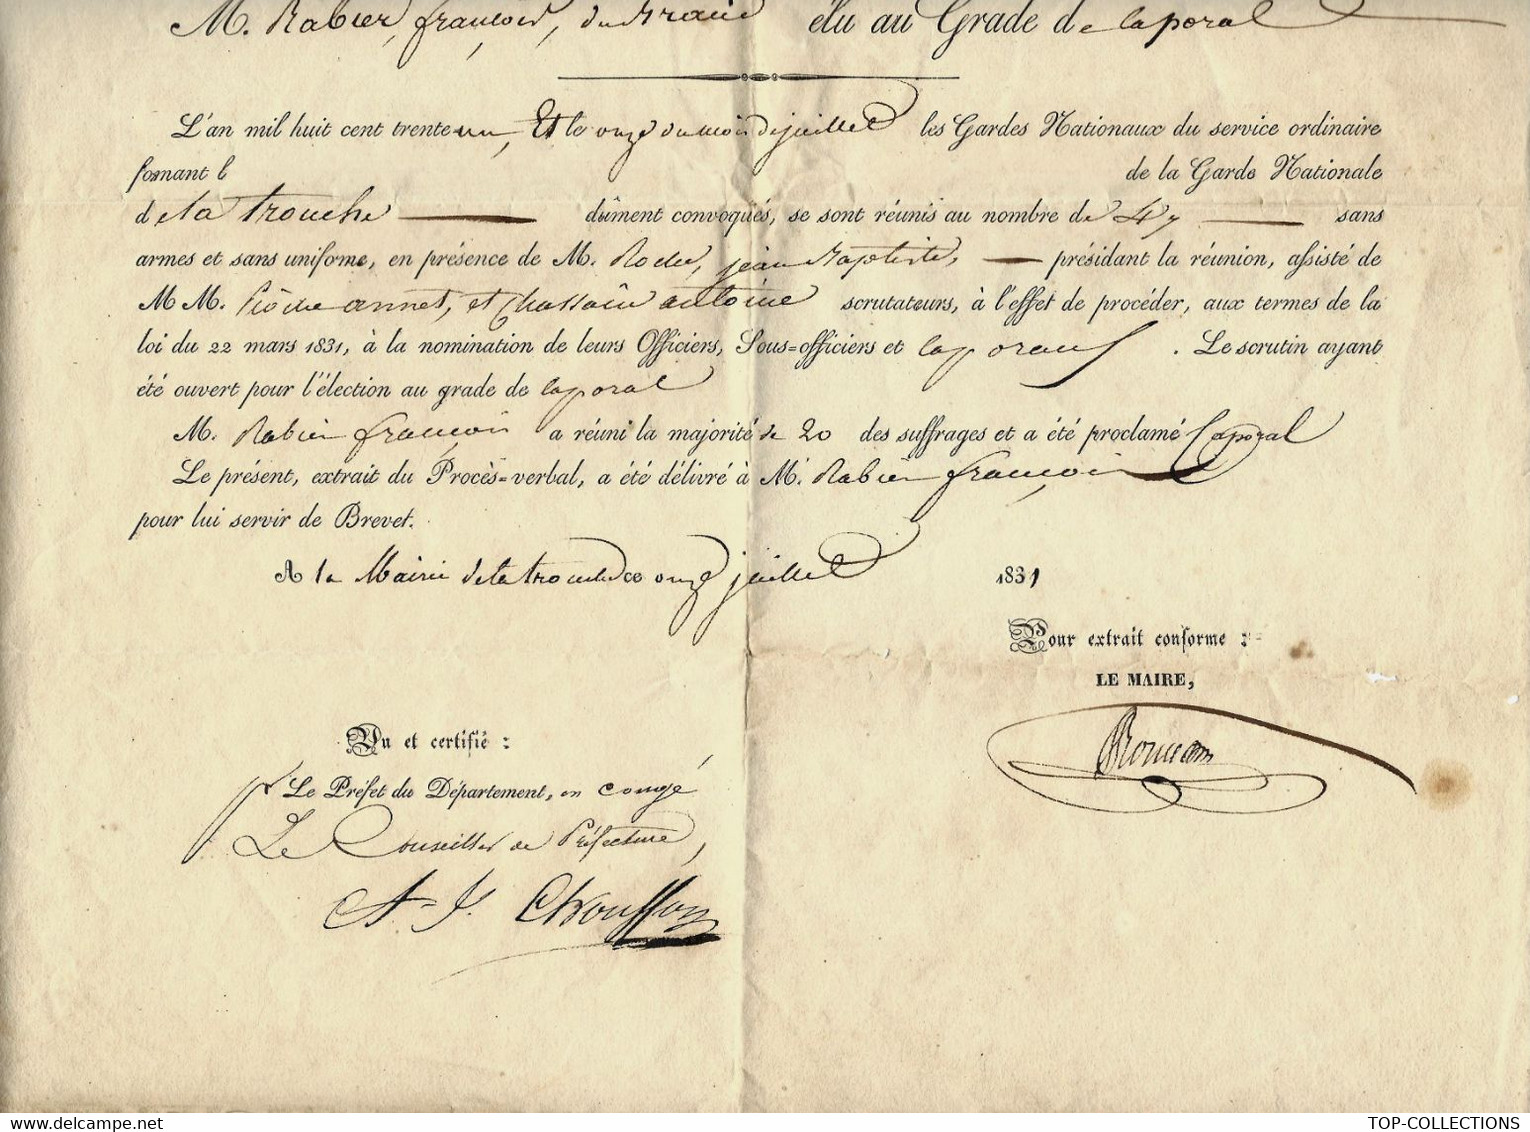 M. Rabier, françois, du élu au Grade de Caporal
L'an mil huit cent trente un, Et le onze du mois de juillet les Gardes Nationaux du service ordinaire
formant l de la Garde Nationale
de la trouche dûment convoqués, se sont réunis au nombre de 47 sans
armes et sans uniforme, en présence de M. Roche, jean Baptiste, présidant la réunion, assisté de
M M. annet, et Chassain antoine scrutateurs, à l'effet de procéder, aux termes de la
loi du 22 mars 1831, à la nomination de leurs Officiers, Sous=officiers et Caporaux . Le scrutin ayant
été ouvert pour l'élection au grade de Caporal
M. Rabier françois a réuni la majorité de 20 des suffrages et a été proclamé Caporal
Le présent, extrait du Procès=verbal, a été délivré à M. Rabier françois
pour lui servir de Brevet.
A la Mairie de la trouche ce onze juillet 1831
Pour extrait conforme :
LE MAIRE,
Vu et certifié :
Le Préfet du Département, en congé
Le Conseiller de Préfecture,
TOP-COLLECTIONS